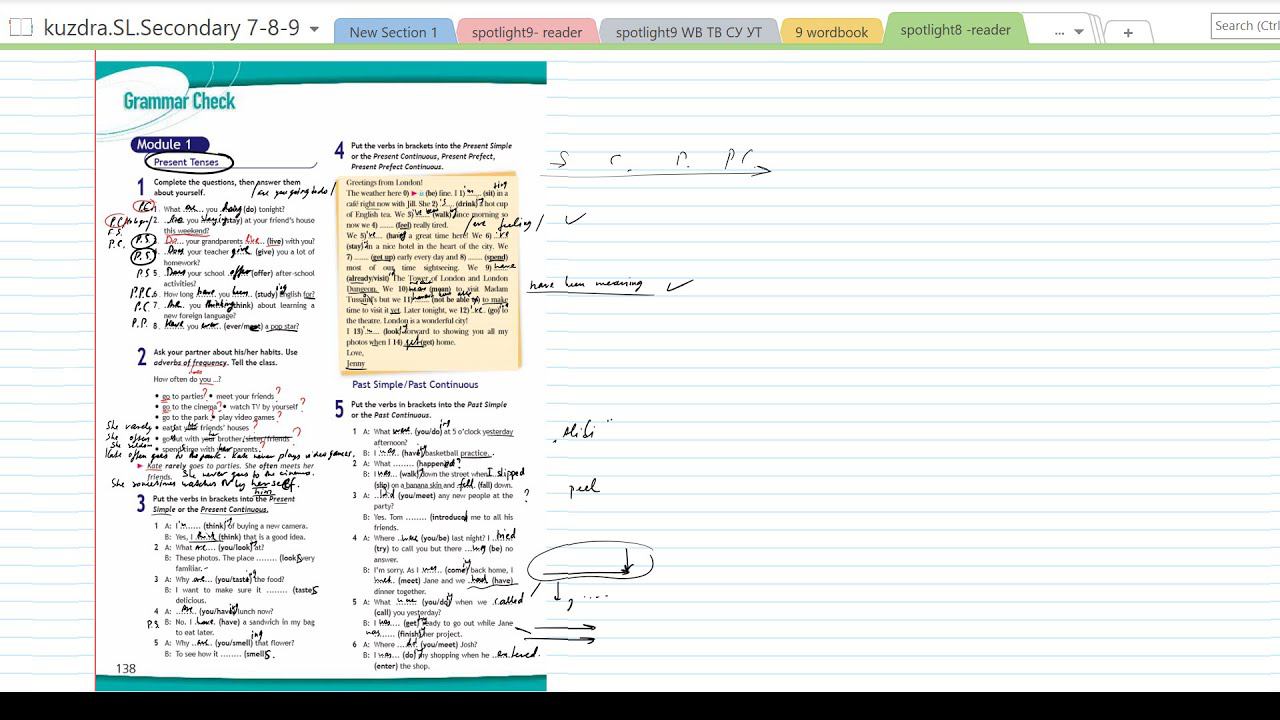 kuzdra.SL.Secondary 7-8-9
New Section 1
spotlight9- reader
spotlight9 WB TB СУ УТ
9 wordbook
spotlight8 -reader
...
+
Search (Ctrl
Grammar Check
Module 1
Present Tenses
1 Complete the questions, then answer them
about yourself.
/are you going to do/
P.C. 1. What are you doing (do) tonight?
P.C. 2. you staying (stay) at your friend's house
this weekend?
P.S. Do... your grandparents live... (live) with you?
P.S. Does your teacher give (give) you a lot of
homework?
P.S 5. Does your school offer (offer) after-school
activities?
P.P.C. 6. How long have you been (study)ing English for?
P.C. 7. Are you thinking (think) about learning a
new foreign language?
P.P. 8. Have you ever (ever/meet) a pop star?
2 Ask your partner about his/her habits. Use
adverbs of frequency. Tell the class.
How often do you ...?
• go to parties? • meet your friends?
• go to the cinema? • watch TV by yourself?
• go to the park? • play video games?
She rarely • eat at your friends' houses?
She often • go out with your brother/sister/friends?
She seldom • spend time with your parents?
Kate often goes to the park. Kate never plays video games.
► Kate rarely goes to parties. She often meets her
friends. She never goes to the cinema.
She sometimes watches TV by herself.
him
3 Put the verbs in brackets into the Present
Simple or the Present Continuous.
1 A: I'm........ (think)ing of buying a new camera.
B: Yes, I think (think) that is a good idea.
2 A: What are.... (you/look)ing at?
B: These photos. The place ........ (look)s very
familiar.
3 A: Why are... (you/taste)ing the food?
B: I want to make sure it ........ (taste)s
delicious.
4 A: Are (you/have)ing lunch now?
P.S. B: No. I have (have) a sandwich in my bag
to eat later.
5 A: Why are... (you/smell)ing that flower?
B: To see how it ........ (smell)s.
138
4 Put the verbs in brackets into the Present Simple
or the Present Continuous, Present Perfect,
Present Prefect Continuous.
Greetings from London!
The weather here 0) ► is (be) fine. I 1) 'm (sit)ting in a
café right now with Jill. She 2) 's (drink)ing a hot cup
of English tea. We 3) 've been (walk)ing since morning so
now we 4) ........ (feel) really tired.
/are feeling/
We 5) 've (have) a great time here! We 6) 've
(stay) in a nice hotel in the heart of the city. We
7) ........ (get up) early every day and 8) ........ (spend)
most of our time sightseeing. We 9) have
(already/visit) The Tower of London and London
Dungeon. We 10) (mean) to visit Madam
have been meaning
Tussaud's but we 11) (not be able to) to make
time to visit it yet. Later tonight, we 12) 're (go)ing to
the theatre. London is a wonderful city!
I 13) 'm (look)ing forward to showing you all my
photos when I 14) get (get) home.
Love,
Jenny
Past Simple/Past Continuous
5 Put the verbs in brackets into the Past Simple
or the Past Continuous.
1 A: What were... (you/do)ing at 5 o'clock yesterday
afternoon?
B: I was (have)ing basketball practice.
2 A: What ........ (happen)ed?
B: I was (walk)ing down the street when I slipped
(slip) on a banana skin and fell (fall) down.
3 A: ...Did (you/meet) any new people at the
party?
B: Yes. Tom ........ (introduce)d me to all his
friends.
4 A: Where were (you/be) last night? I tried
(try) to call you but there ...was (be) no
answer.
B: I'm sorry. As I was (come)ing back home, I
met (meet) Jane and we had (have)
dinner together.
5 A: What were (you/do)ing when we called
(call) you yesterday?
B: I was (get)ting ready to go out while Jane
was (finish)ing her project.
6 A: Where ...did (you/meet) Josh?
B: I was (do)ing my shopping when he entered.
(enter) the shop.
S C. P. P.C.
peel